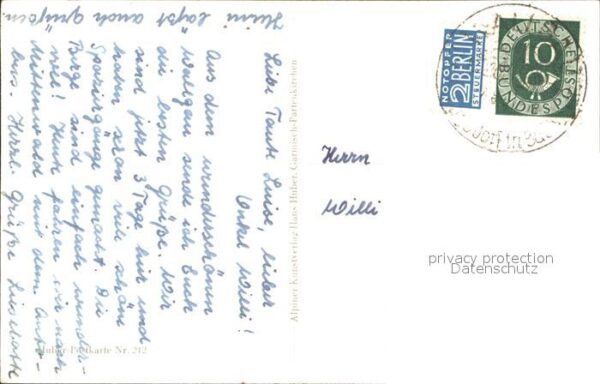 Liebe Tante Luise, lieber
Onkel Willi!
Aus dem wunderschönen
Wallgau sende ich Euch
die besten Grüße. Wir
sind jetzt 3 Tage hier und
haben schon viele schöne
Spaziergänge gemacht. Die
Berge sind einfach wunder-
voll! Heute fahren wir nach
Mittenwald mit dem Auto-
bus. Herzl. Grüße Liselotte
Heini laßt auch grüßen.
Alpiner Kunstverlag Hans Huber, Garmisch-Partenkirchen
Huber-Postkarte Nr. 212
Herrn
Willi
NOTOPFER
2 BERLIN
STEUERMARKE
DEUTSCHE BUNDESPOST
10
privacy protection
Datenschutz